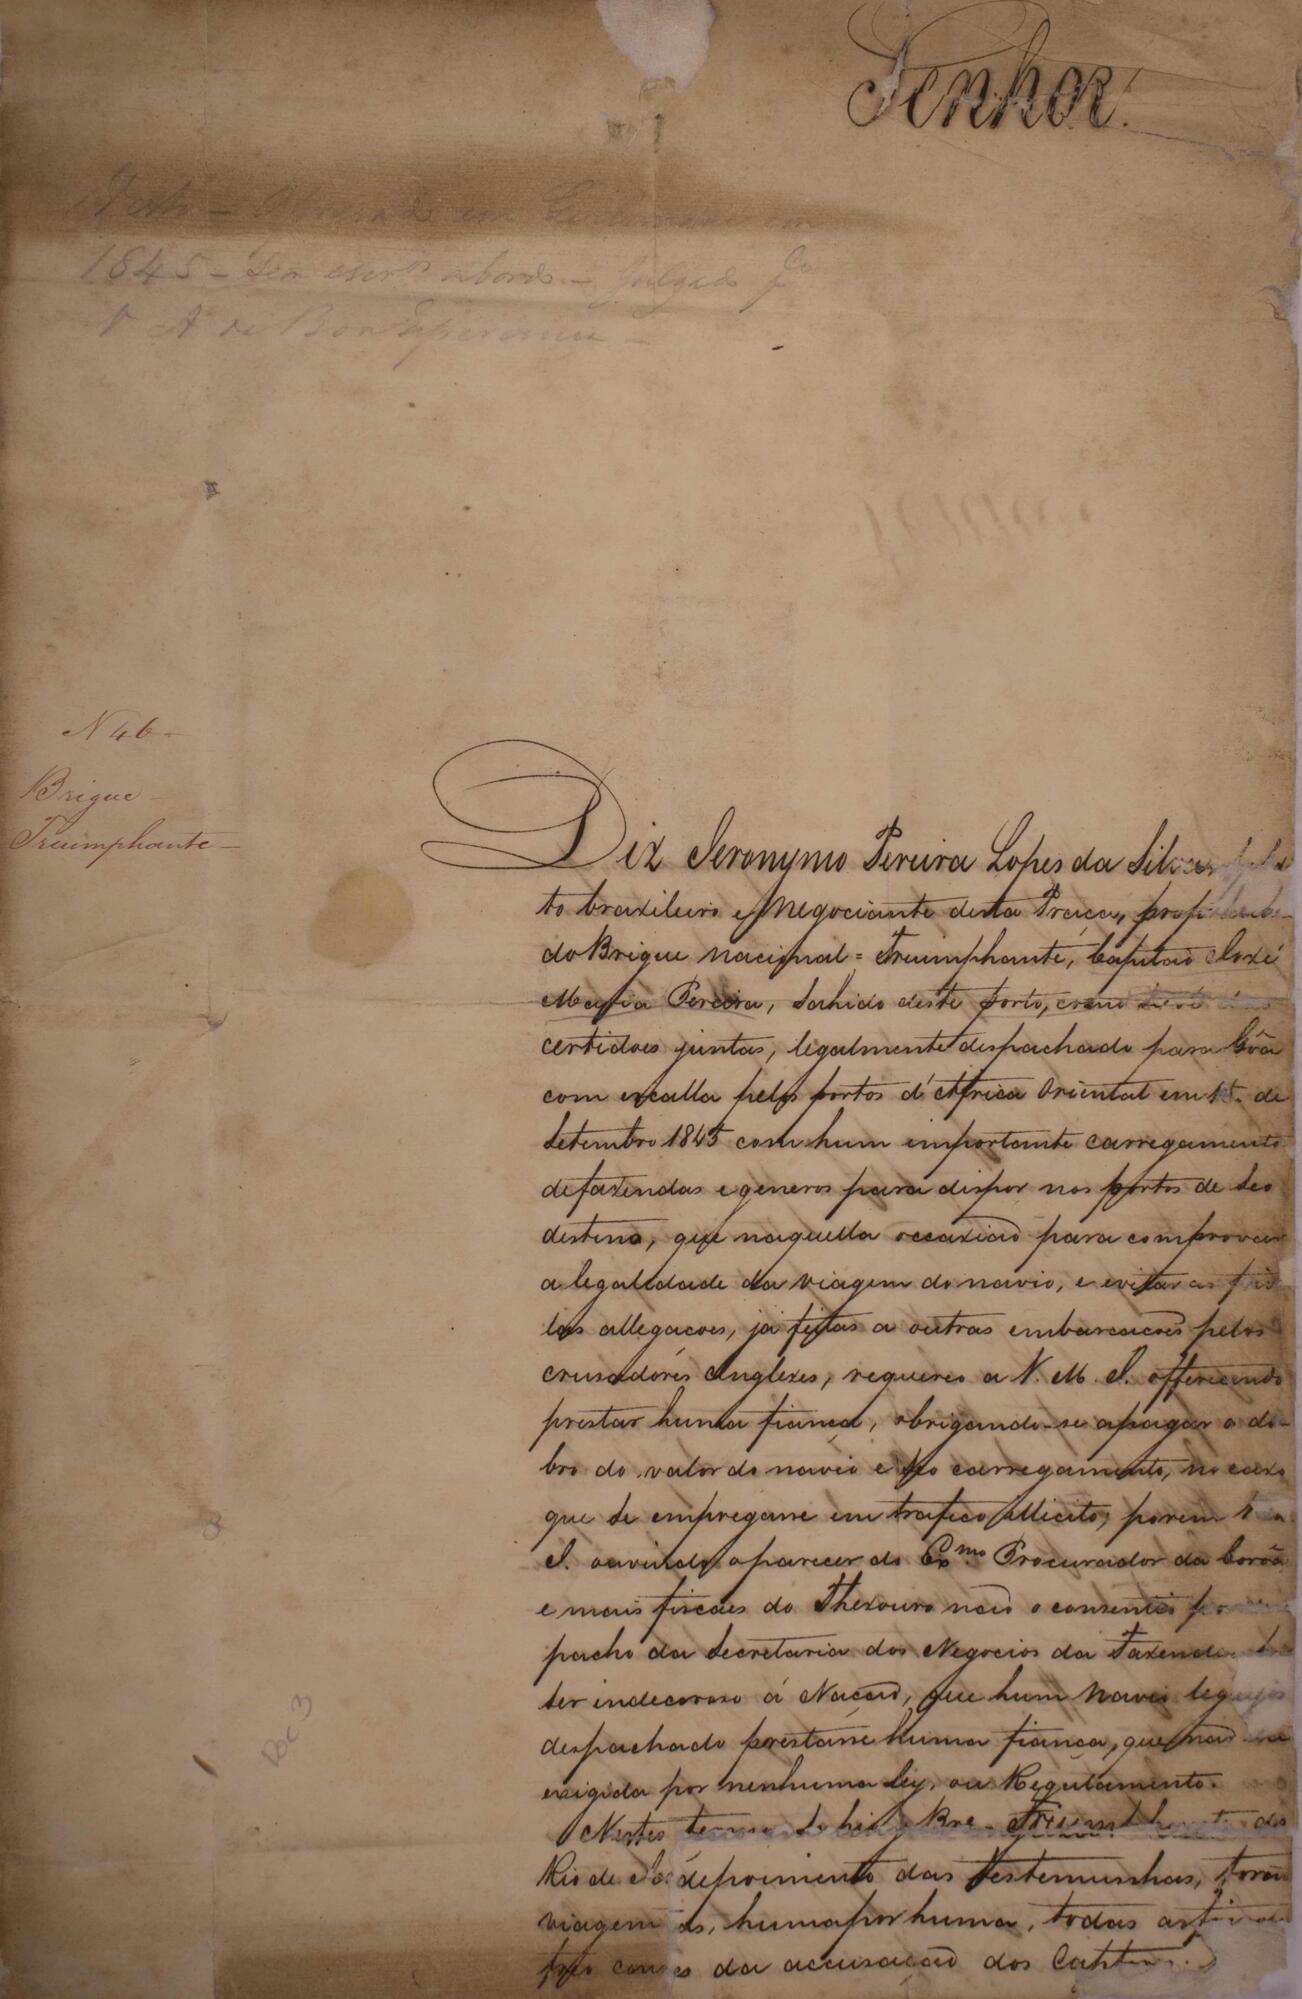 Senhor.
1845 – Sem escr.os abordo – Julgado
de Boa Esperança –
N 46–
Brigue –
Triumphante –
Diz Jeronymo Pereira Lopes da Silva
to brazileiro e Negociante desta Praça,
do Brigue nacional = Triumphante, Capitaõ Jozé
Maria Pereira, sahido deste porto, como
certidoes juntas, legalmente despachado para Gôa
com escalla pelos portos d'Africa Oriental em 15. de
Setembro 1845 com hum importante carregamento
defazendas e generos para dispor nos portos de seo
destino, que naquella occaziaõ para comprovar
a legalidade da viagem do navio, e evitar as
las allegacoes, já feitas a outras embarcacoes pelos
crusadores Inglezes, requereo a V. M. I. offerecendo
prestar huma fiança, obrigando-se apagar o do-
bro do valor do navio e seo carregamento, no cazo
que se empregasse em trafico illicito; porem
I. ouvindo oparecer do Ex.mo Procurador da Corôa
e mais fiscaes do Thezouro naõ o consentio
pacho da Secretaria dos Negocios da Fazenda
ser indecoroso á Naçaõ, que hum Navio
despachado prestasse huma fiança, que naõ
exigida por nenhuma Ley, ou Regulamento.
Nestes termos sahio Triumphante do
Rio de depoimento das Testemunhas,
viagem huma por huma, todas
da accusaçaõ dos
Doc 3